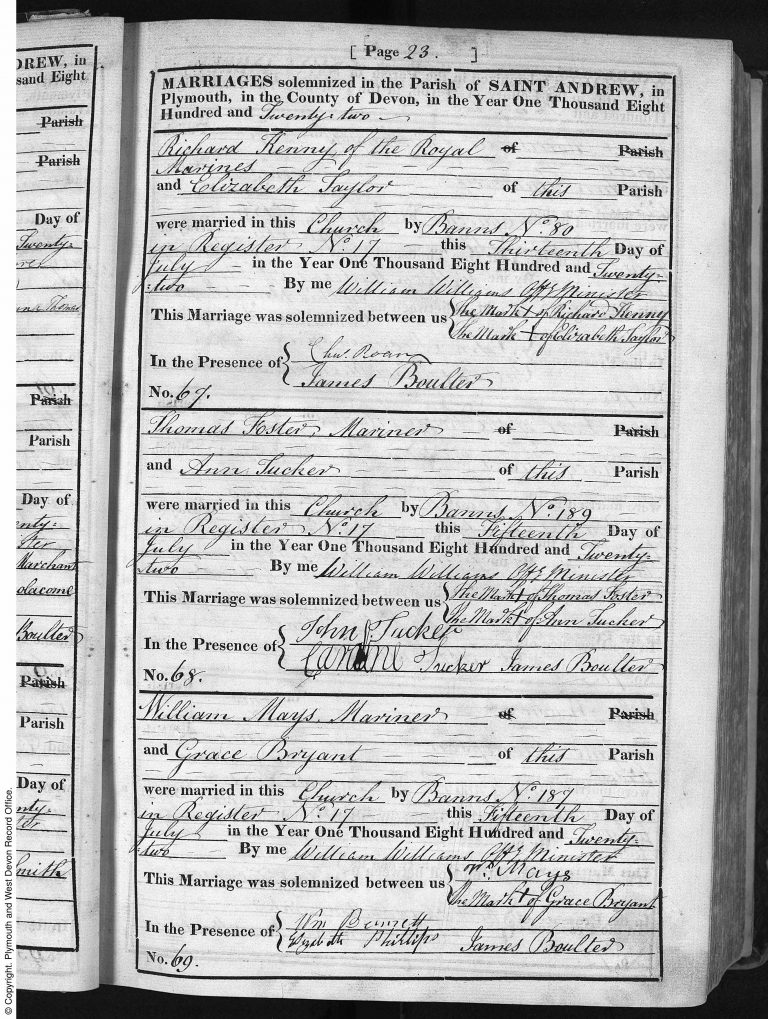 [ Page 23. ]
MARRIAGES solemnized in the Parish of SAINT ANDREW, in
Plymouth, in the County of Devon, in the Year One Thousand Eight
Hundred and Twenty-two
Richard Kenny of the Royal of Parish
Marines
and Elizabeth Taylor of this Parish
were married in this Church by Banns No. 80
in Register No. 17 this Thirteenth Day of
July in the Year One Thousand Eight Hundred and Twenty-
two By me William Williams Offg Minister
This Marriage was solemnized between us The Mark + of Richard Kenny
The Mark + of Elizabeth Taylor
In the Presence of
James Boulter
No. 67.
Thomas Foster, Mariner of Parish
and Ann Tucker of this Parish
were married in this Church by Banns No. 189
in Register No. 17 this Fifteenth Day of
July in the Year One Thousand Eight Hundred and Twenty-
two By me William Williams Offg Minister
This Marriage was solemnized between us The Mark + of Thomas Foster
The Mark + of Ann Tucker
In the Presence of John Tucker
Caroline Tucker James Boulter
No. 68.
William Mays, Mariner of Parish
and Grace Bryant of this Parish
were married in this Church by Banns No. 187
in Register No. 17 this Fifteenth Day of
July in the Year One Thousand Eight Hundred and Twenty-
two By me William Williams Offg Minister
This Marriage was solemnized between us Wm. Mays
The Mark + of Grace Bryant
In the Presence of Wm
Elizabeth Phillips James Boulter
No. 69.
DREW, in
sand Eight
Parish
Parish
Day of
Twenty-
Thomas
Parish
Parish
Day of
enty-
Marchant
olacome
Boulter
Parish
Parish
Day of
nty-
Smith
© Copyright. Plymouth and West Devon Record Office.